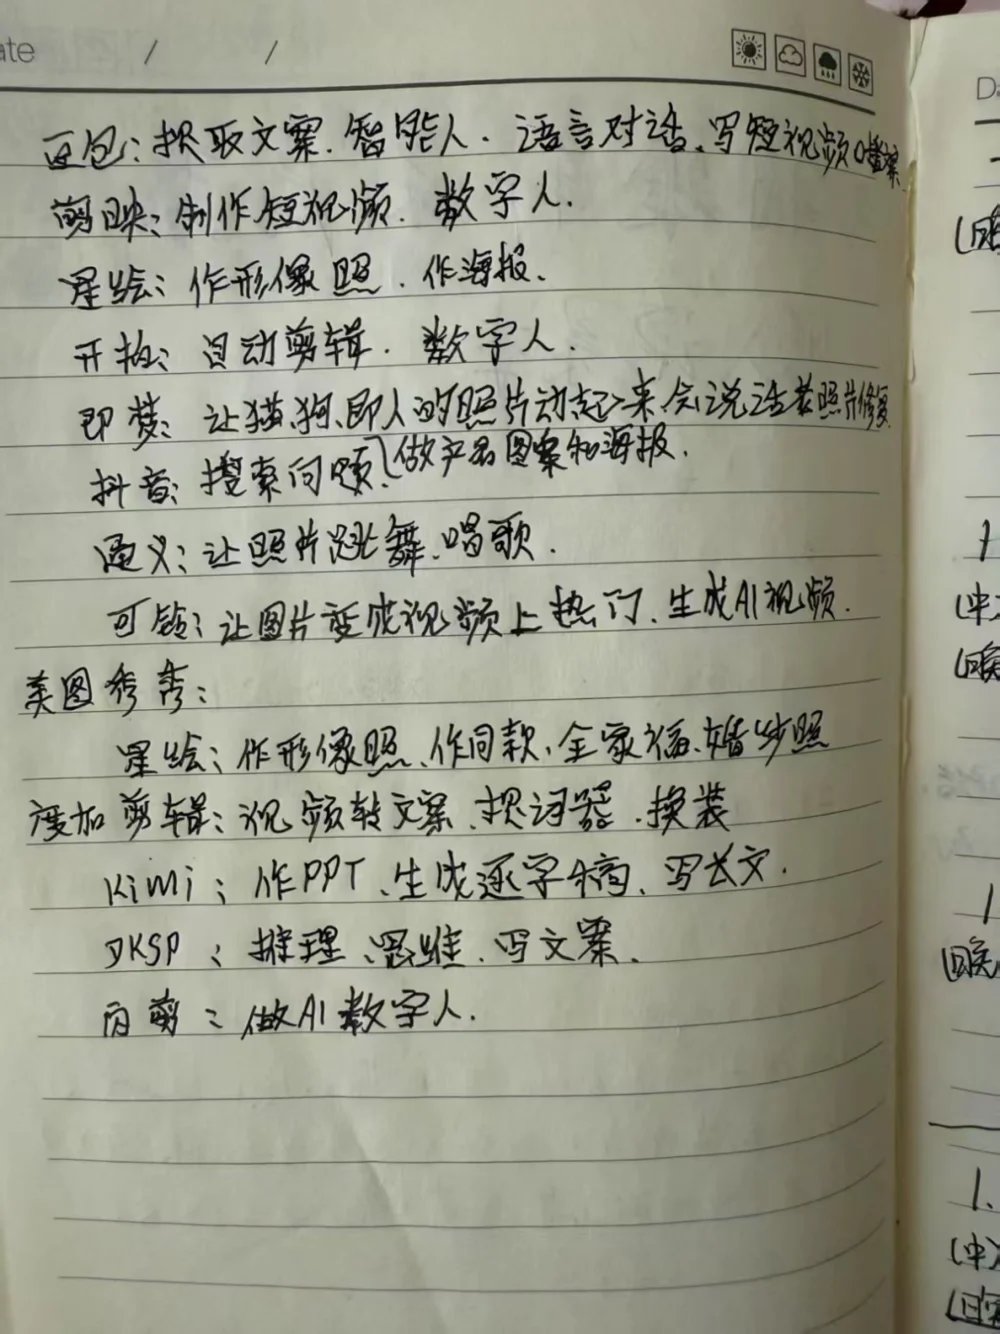 ate / /
豆包：提取文案、智能人、语言对话、写短视频口播文案
剪映：制作短视频、数字人.
星绘：作形像照、作海报.
开拍：自动剪辑、数字人.
即梦：让猫、狗、即人的照片动起来、会说话老照片修复
抖音：搜索问题、(做产品图案和海报.
通义：让照片跳舞、唱歌.
可铃：让图片变成视频上热门、生成AI视频.
美图秀秀：
星绘：作形像照、作同款、全家福、婚纱照
度加剪辑：视频转文案、提词器、换装
Kimi：作PPT、生成逐字稿、写长文.
DKSP：推理、思维、写文案.
百剪：做AI数字人.